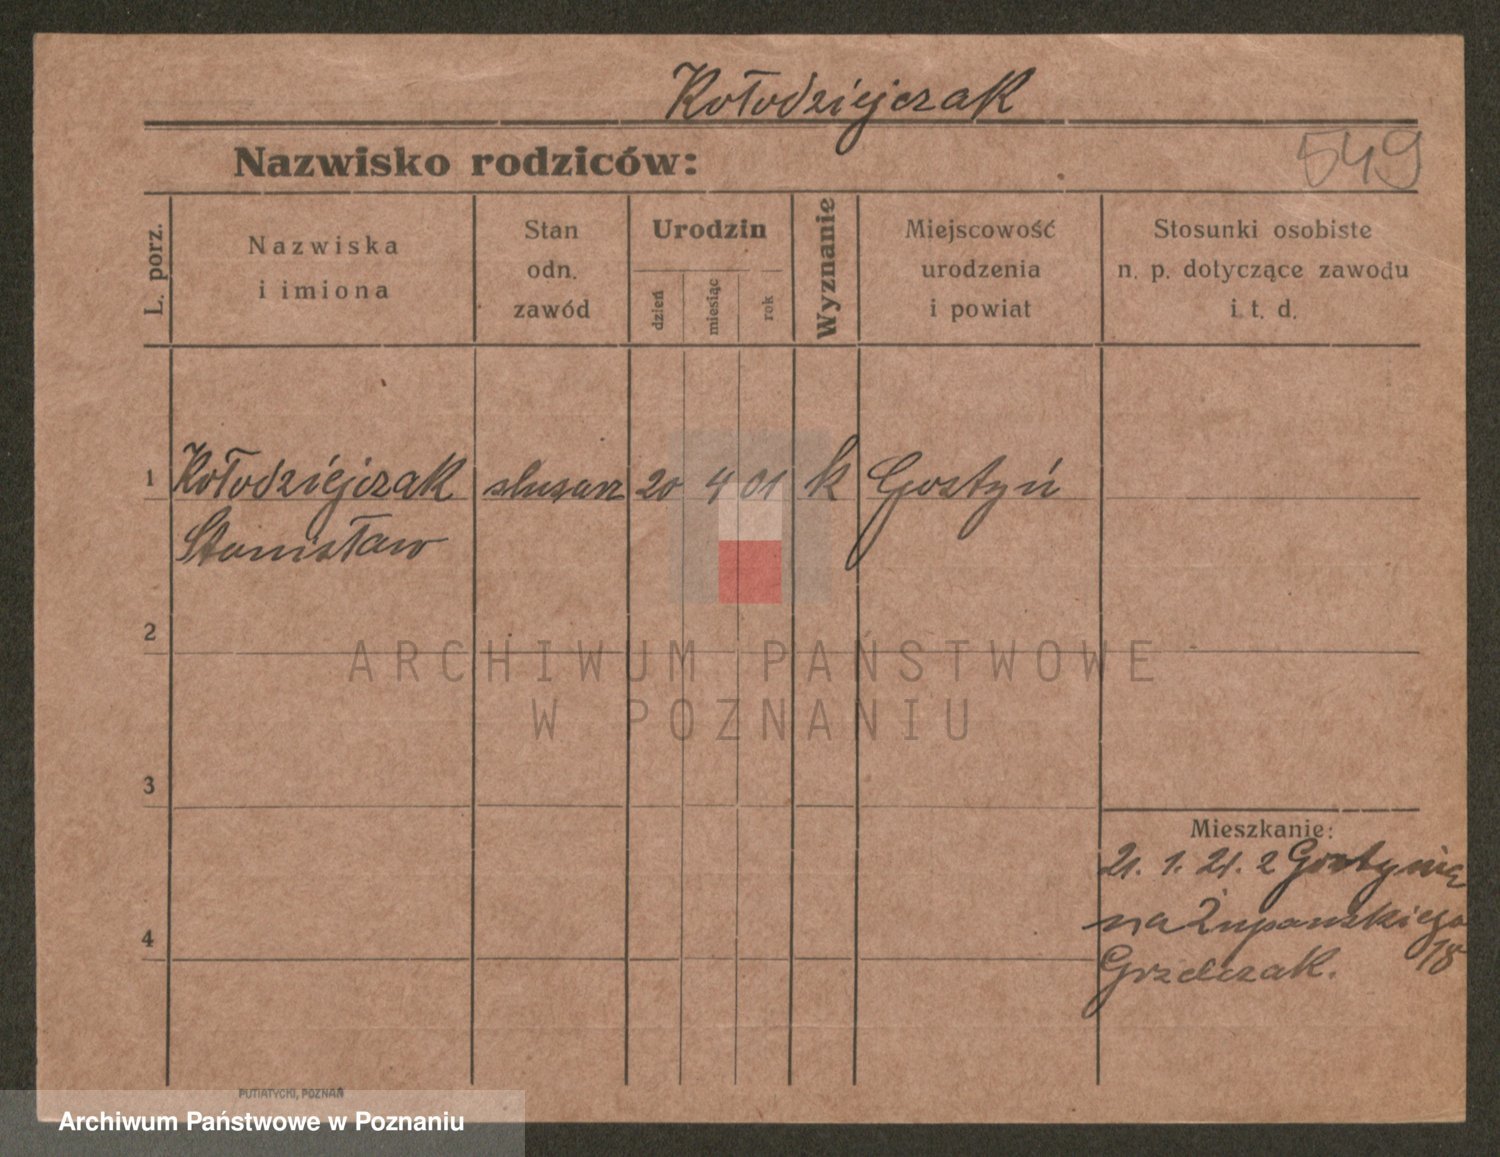 Kołodziejczak
549
Nazwisko rodziców:
L. porz.
Nazwiska
i imiona
Stan
odn.
zawód
Urodzin
dzień
miesiąc
rok
Wyznanie
Miejscowość
urodzenia
i powiat
Stosunki osobiste
n. p. dotyczące zawodu
i t. d.
1 Kołodziejczak ślusarz 20 4 01 k Gostyń
Stanisław
2
ARCHIWUM PAŃSTWOWE
W POZNANIU
3
Mieszkanie:
21. 1. 21. z Gostynia
na Żupańskiego
18
4
Grzelczak.
PUTIATYCKI, POZNAŃ
Archiwum Państwowe w Poznaniu